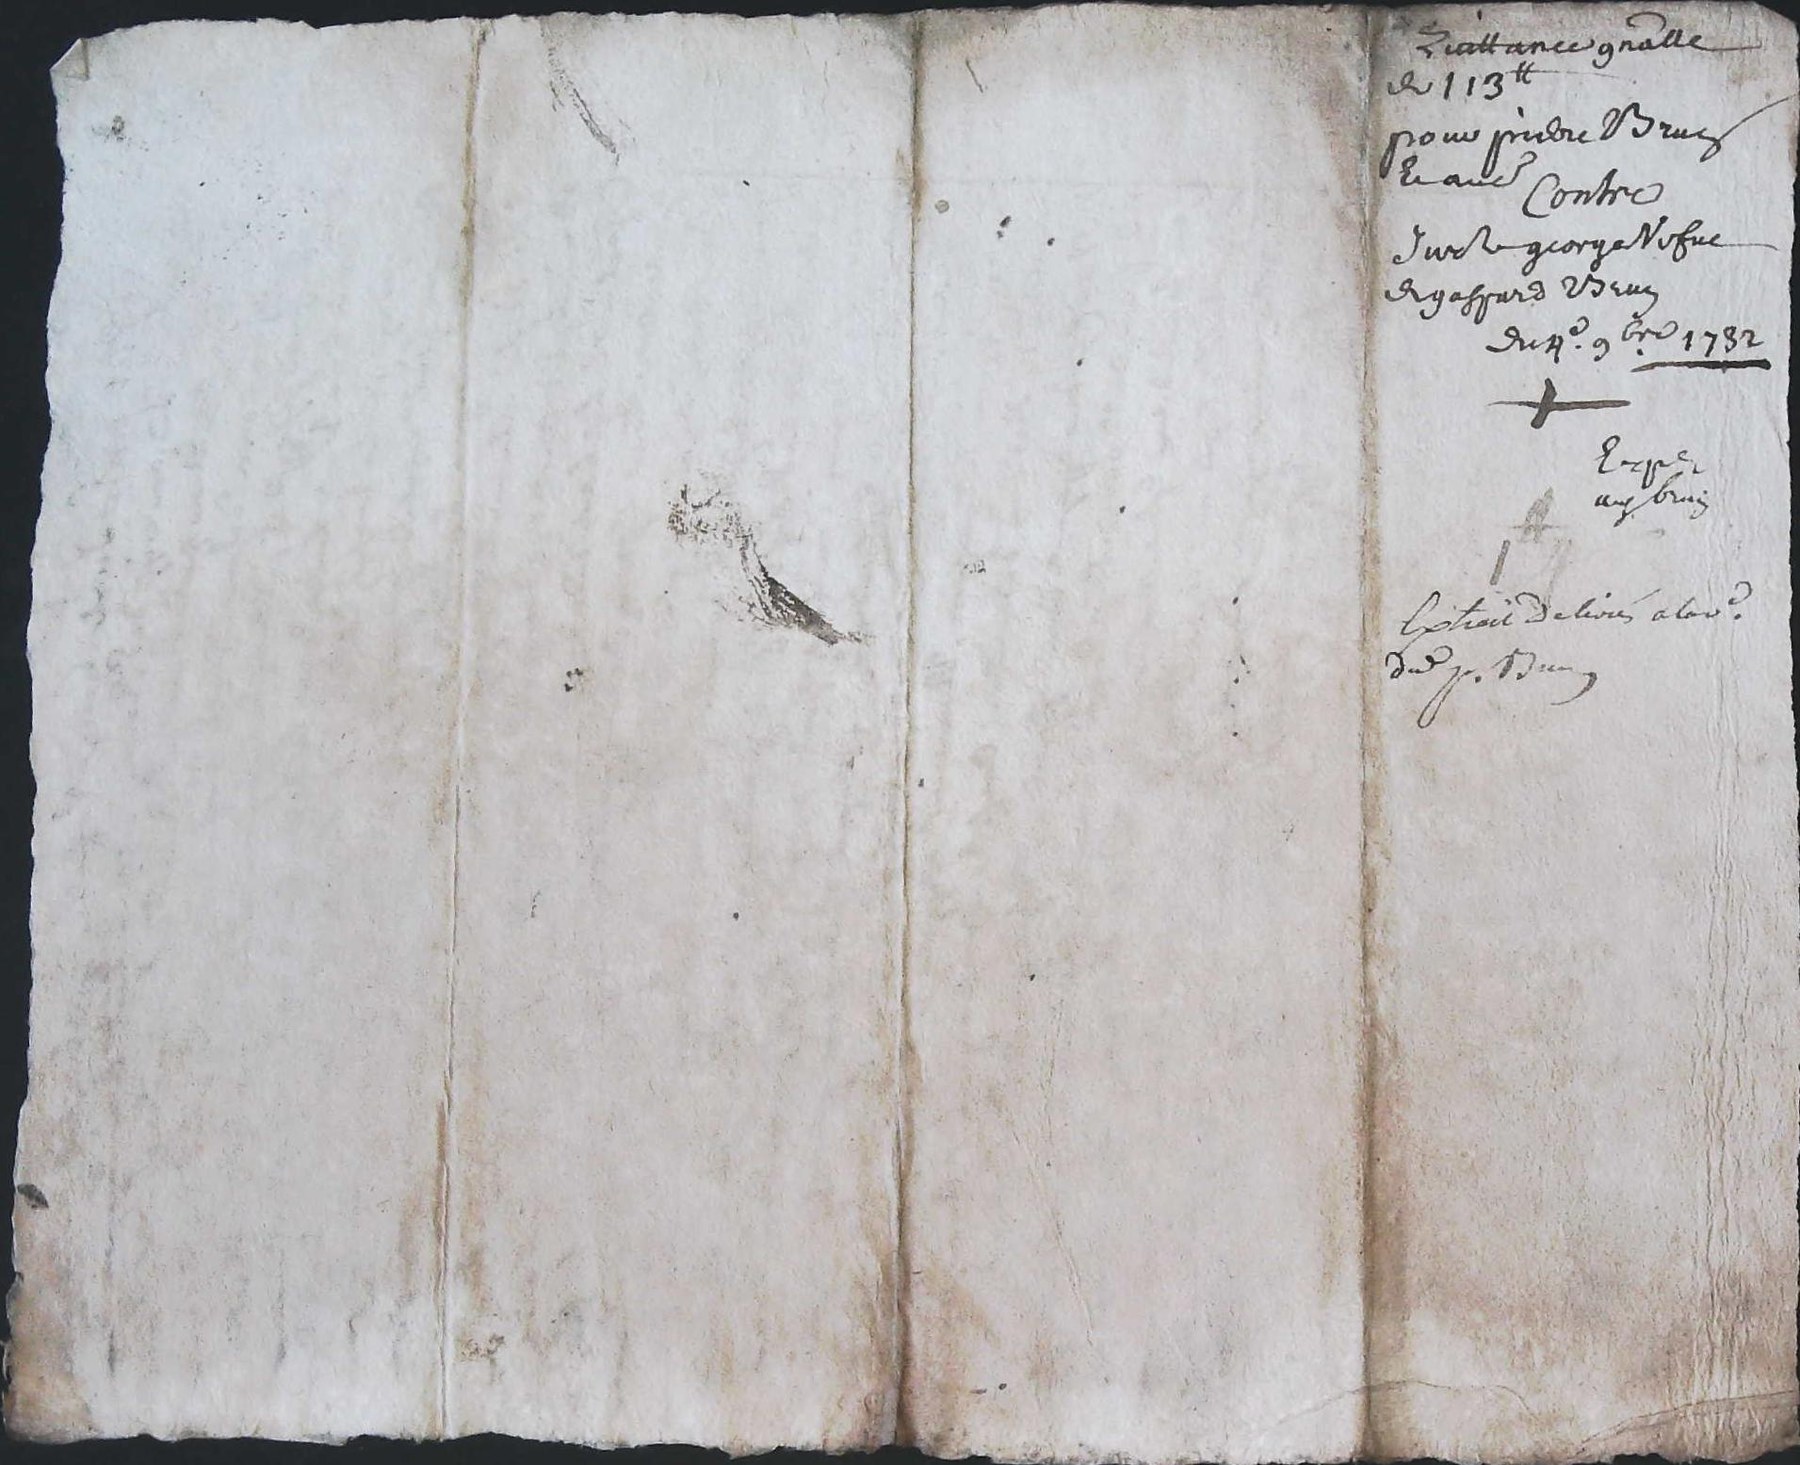 Quittance gnãlle
de 113 tt
pour pierre Brun
Et aues
Contre
george Vefue
de gaspard Brun
du 4e. 9bre 1732
Expée
aux brun
Extrait Delivré a la ve.
dud p. Brun